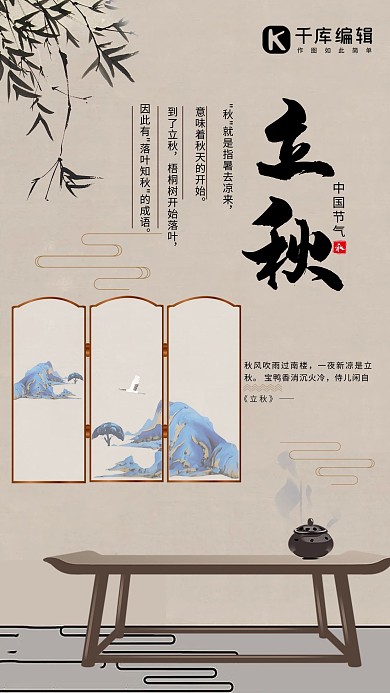 千库编辑
作图如此简单
立秋
中国节气
秋
"秋"就是指暑去凉来，
意味着秋天的开始。
到了立秋，梧桐树开始落叶，
因此有"落叶知秋"的成语。
秋风吹雨过南楼，一夜新凉是立
秋。 宝鸭香消沉火冷，侍儿闲自
《立秋》——